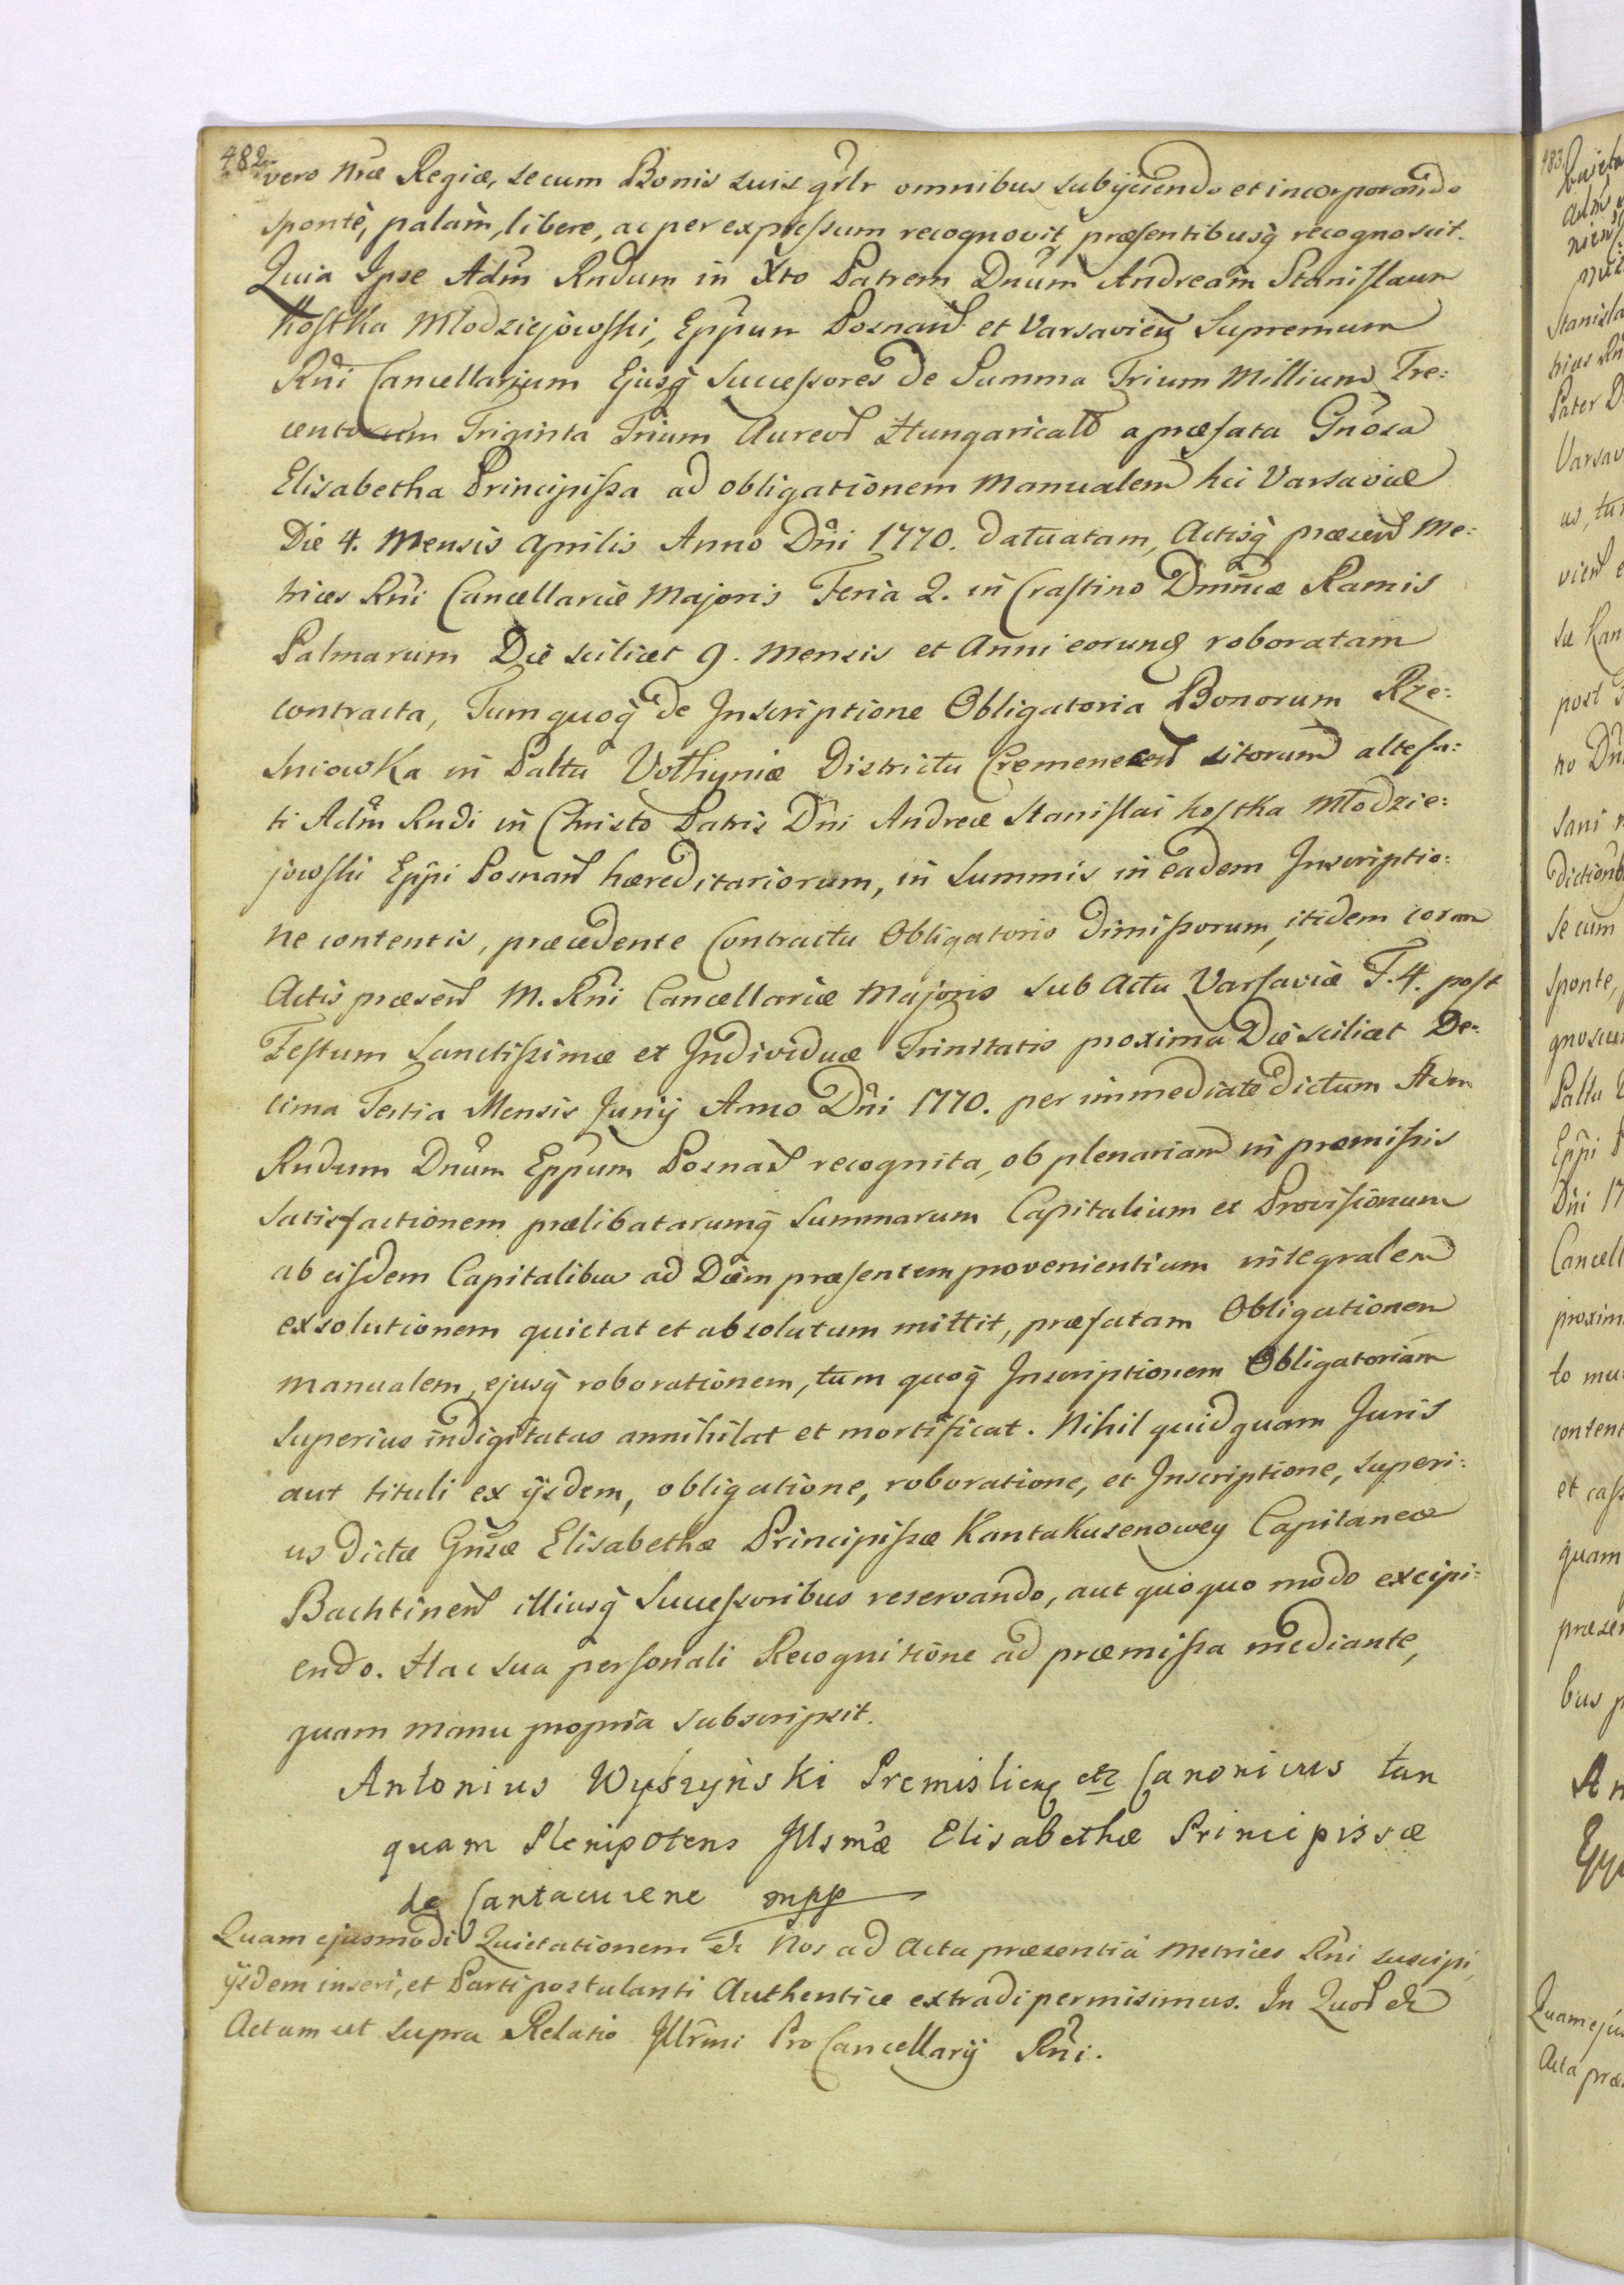 482
vero Nræ Regiæ, secum Bonis suis grlr omnibus subijciendo et incorporando
sponte, palam, libere, ac per expressum recognovit præsentibusq recognoscit.
Quia Ipse Adm Rndum in Xto Patrem Dnum Andream Stanislaum
Kostka Młodziejowski, Eppum Posnan et Varsavien Supremum
Rni Cancellarium Ejusq Successores de Summa Trium Millium Tre:
centorum Triginta Trium Aureor Hungarical a præfata Gnosa
Elisabetha Principissa ad obligationem Manualem hic Varsaviæ
Die 4. Mensis Aprilis Anno Dni 1770. datuatam, Actisq præsen Me:
trices Rni Cancellariæ Majoris Feria 2. in Crastino Dnnicæ Ramis
Palmarum Die scilicet 9. Mensis et Anni eorund roboratam
contracta, Tum quoq de Inscriptione Obligatoria Bonorum Rze:
sniowka in Paltu Volhyniæ Districtu Cremenecen sitorum altefa:
ti Adm Rndi in Christo Patris Dni Andreæ Stanislai Kostka Młodzie:
jowski Eppi Posnan hæreditariorum, in Summis in eadem Inscriptio:
ne contentis, præcedente Contractu Obligatorio dimissorum, itidem coram
Actis præsen M. Rni Cancellariæ Majoris sub Actu Varsaviæ F. 4. post
Festum Sanctissimæ et Individuæ Trinitatis proxima Die scilicet De:
cima Tertia Mensis Junij Anno Dni 1770. per immediate dictum Adm
Rndum Dnum Eppum Posnan recognita, ob plenariam in præmissis
satisfactionem prælibatarumq Summarum Capitalium et Provisionum
ab eisdem Capitalibus ad Diem præsentem provenientium integralem
exsolutionem quietat et absolutum mittit, præfatam Obligationem
manualem, ejusq roborationem, tum quoq Inscriptionem Obligatoriam
superius indigitatas annihilat et mortificat. Nihil quidquam Juris
aut tituli ex ijsdem, obligatione, roboratione, et Inscriptione, superi:
us dictæ Gnsæ Elisabethæ Principissæ Kantakuzenowey Capitaneæ
Bachtinen illiusq Successoribus reservando, aut quoquo modo excipi:
endo. Hac sua personali Recognitione ad præmissa mediante,
quam manu propria subscripsit.
Antonius Wyszyński Premislien etc Canonicus tan
quam Plenipotens Illsmæ Elisabethæ Principissæ
de Cantacuzene mpp
Quam ejusmodi Quietationem etc Nos ad Acta præsentia Metrices Rni suscipi,
ijsdem inseri, et Parti postulanti Authentice extradi permisimus. In Quor etc
Actum ut supra Relatio Illrmi Pro Cancellarij Rni.
483